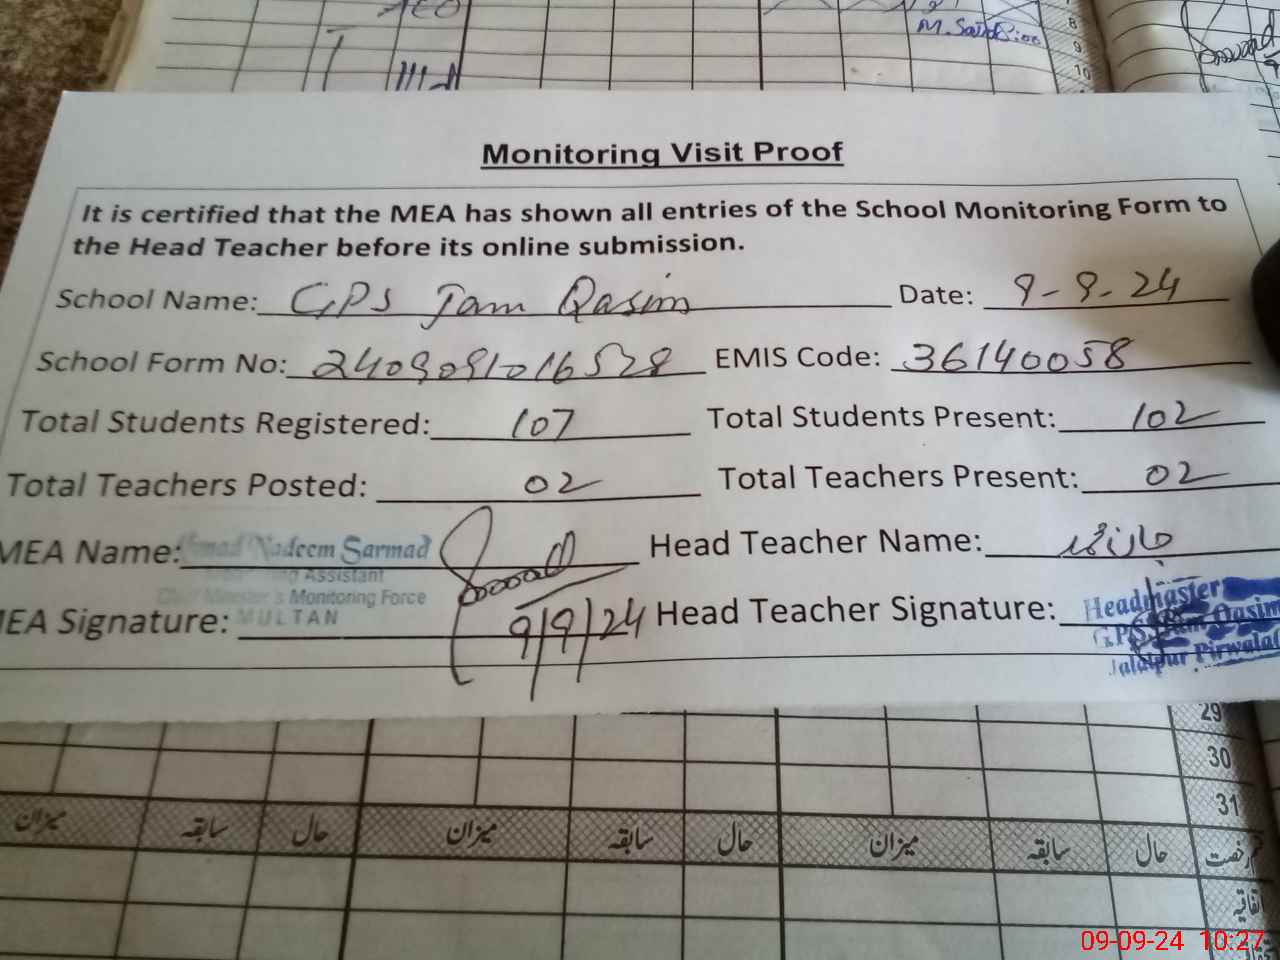 M. Sajid
8
9
10
Monitoring Visit Proof
It is certified that the MEA has shown all entries of the School Monitoring Form to
the Head Teacher before its online submission.
School Name: GPS Jam Qasim Date: 9-9-24
School Form No: 2409091016528 EMIS Code: 36140058
Total Students Registered: 107 Total Students Present: 102
Total Teachers Posted: 02 Total Teachers Present: 02
MEA Name: Nadeem Sarmad Head Teacher Name:
Assistant
Monitoring Force
MULTAN
EA Signature: 9/9/24 Head Teacher Signature:
Headmaster
GPS Jam Qasim
Jalalpur Pirwala
29
30
31
میزان سابقہ حال میزان سابقہ حال میزان سابقہ حال رخصت
اتفاقیہ
09-09-24 10:27